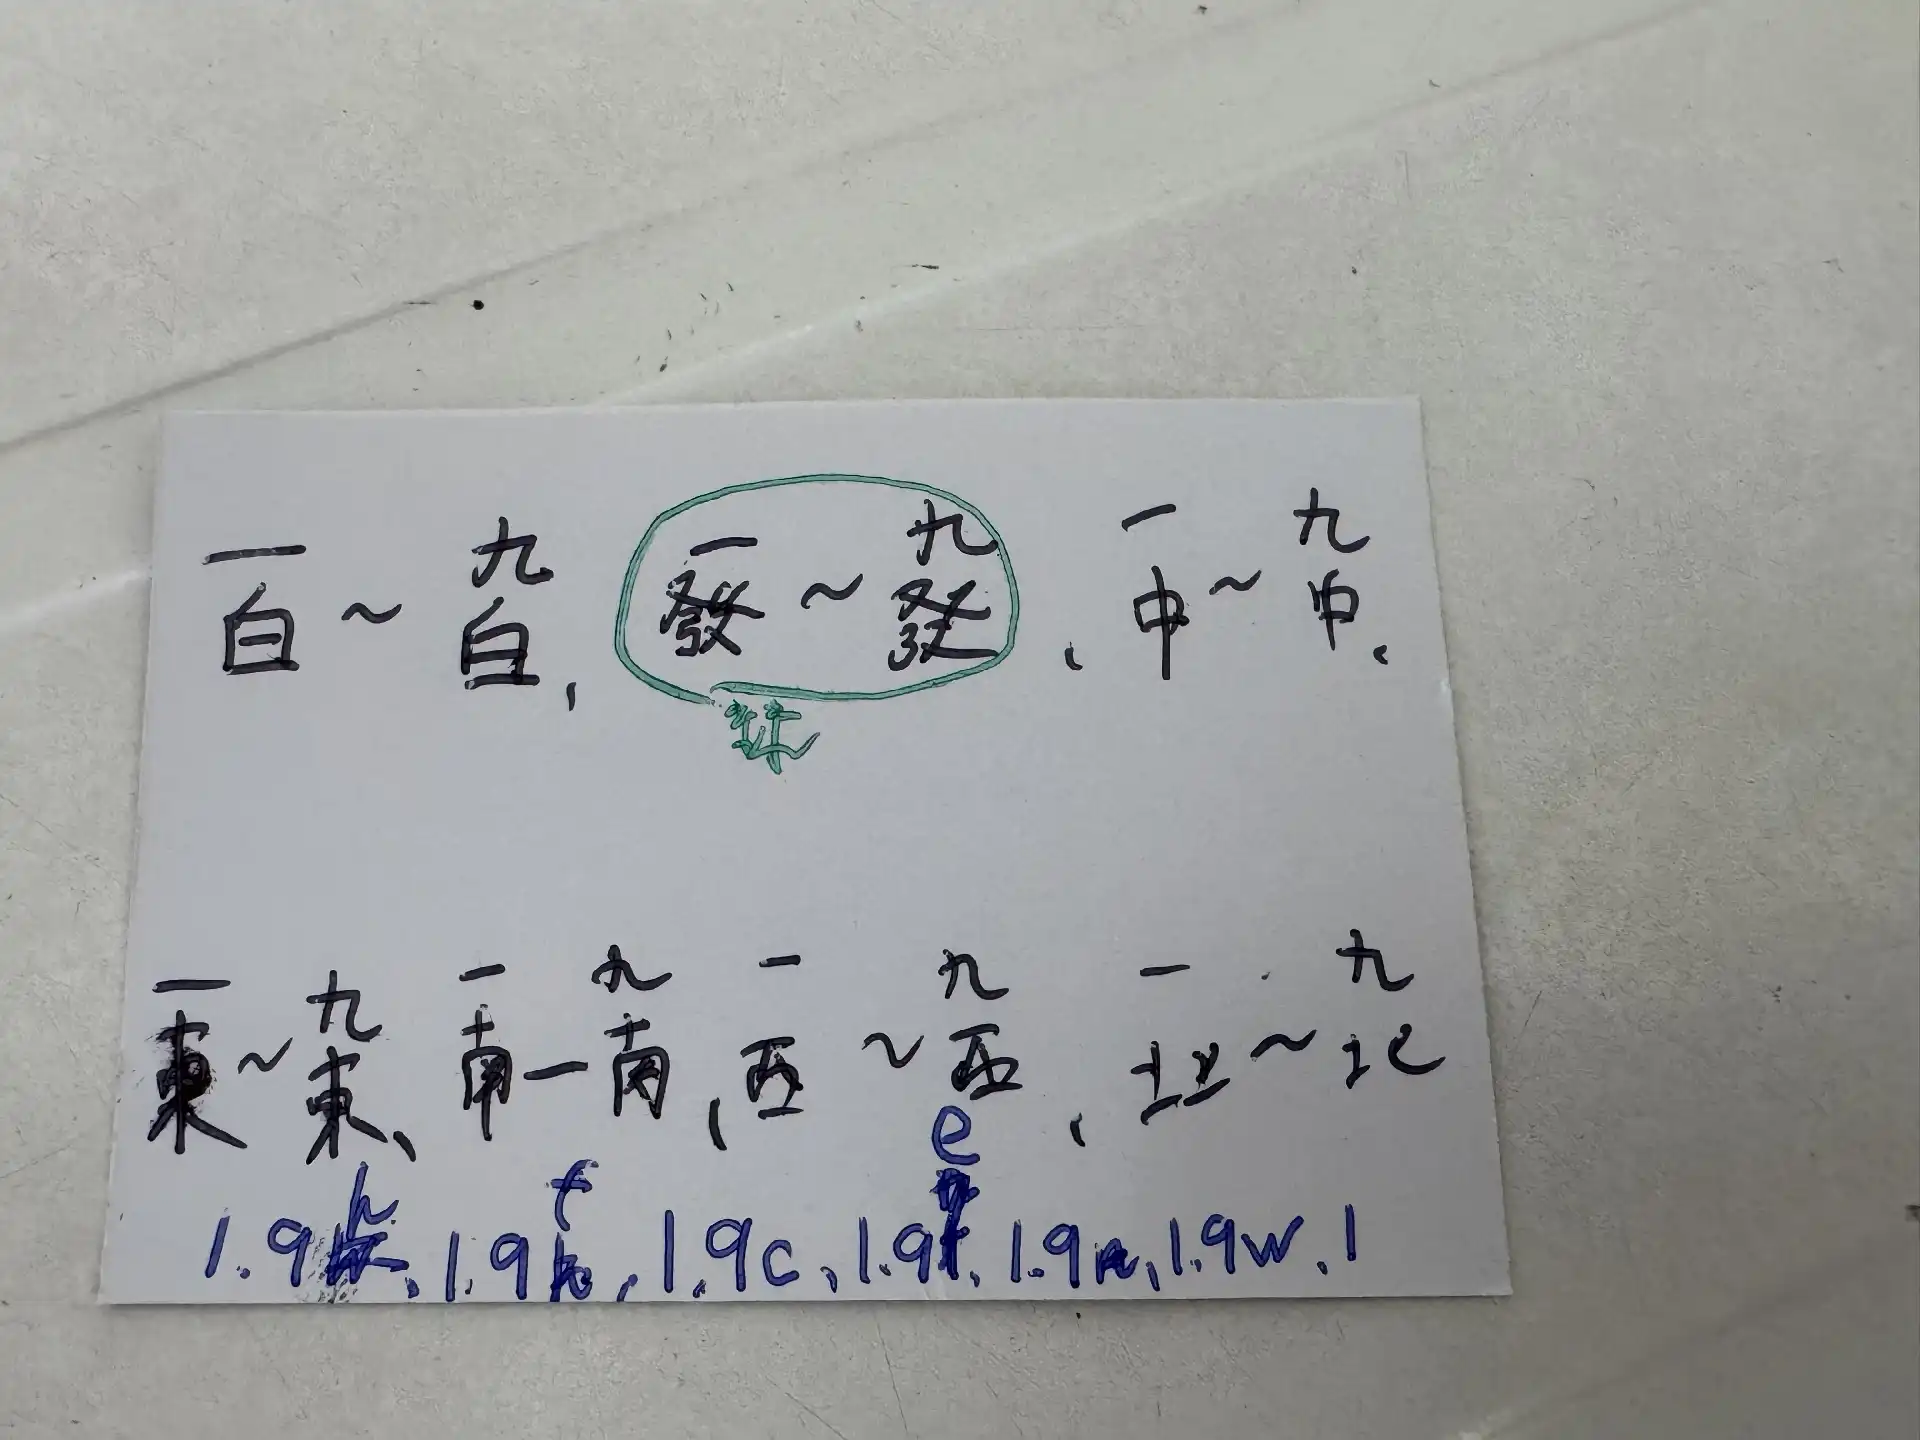 一 九 一 九 一 九
白～白, 發～發、中～中、
一 九 一 九 一 九 一 九
東～東、南一南, 西～西、北～北
h f e
1.9 , 1.9 , 1.9c, 1.9 , 1.9n, 1.9w, 1